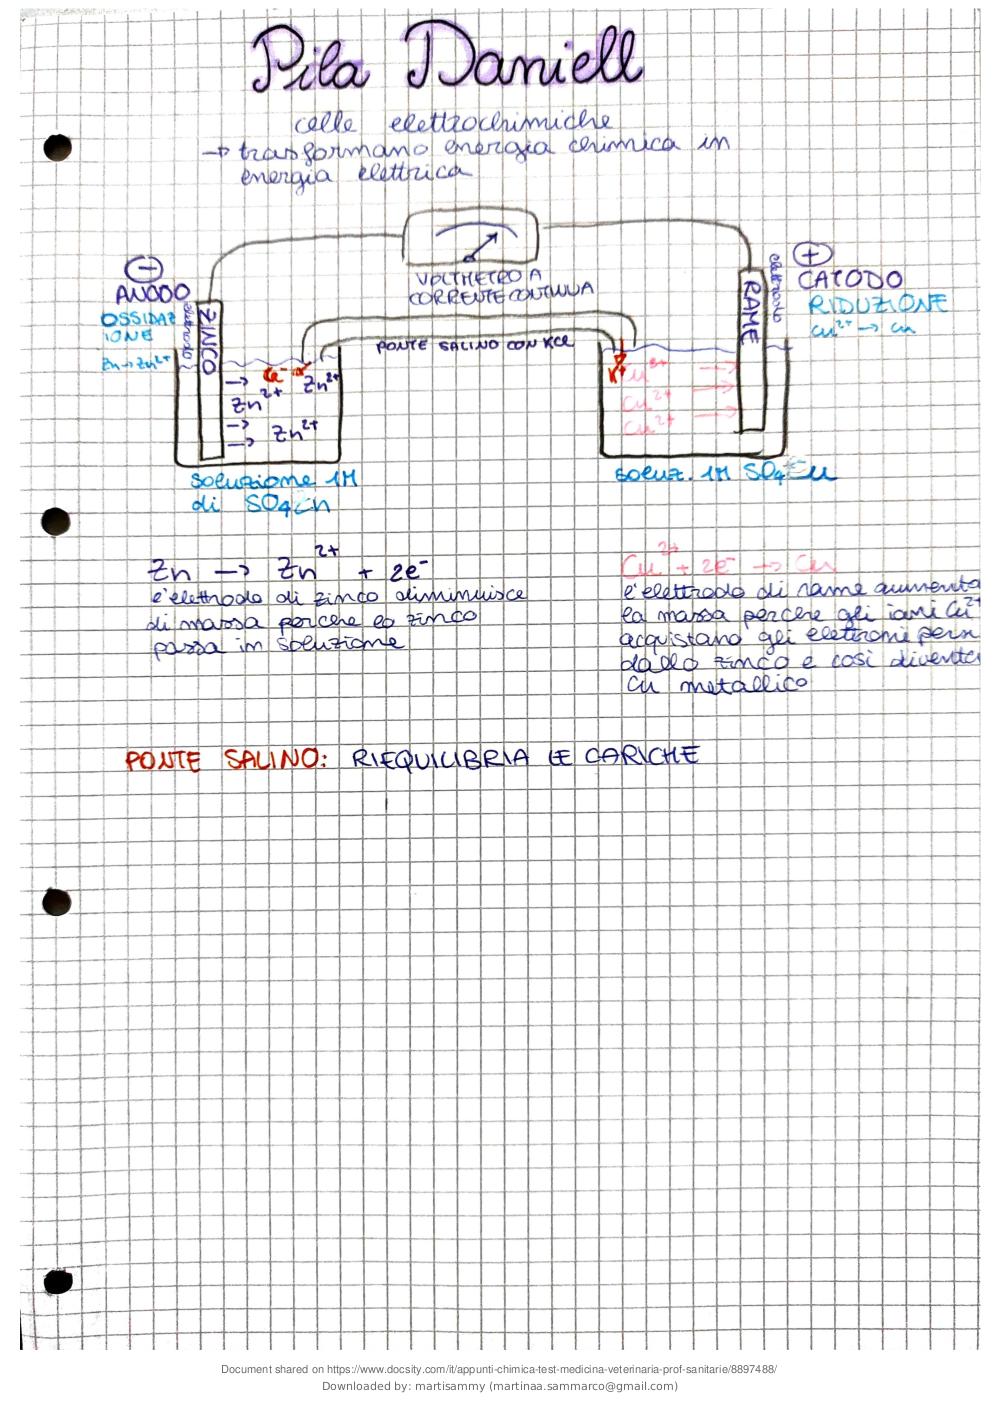 Pila Daniell
celle elettrochimiche
→ trasformano energia chimica in
energia elettrica
VOLTMETRO A
CORRENTE CONTINUA
PONTE SALINO CON KCl
⊖
ANODO
OSSIDAZ
IONE
Zn → Zn²⁺
elettrodo
ZINCO
⊕
CATODO
RIDUZIONE
Cu²⁺ → Cu
elettrodo
RAME
Cl⁻
Zn²⁺
Zn²⁺
Zn²⁺
K⁺
Cu²⁺
Cu²⁺
Cu²⁺
soluzione 1M
di SO₄Zn
soluz. 1M SO₄Cu
Zn → Zn²⁺ + 2e⁻
l'elettrodo di zinco diminuisce
di massa perche lo zinco
passa in soluzione
Cu²⁺ + 2e⁻ → Cu
l'elettrodo di rame aumenta
la massa perche gli ioni Cu²⁺
acquistano gli elettroni pers
dallo zinco e così diventa
Cu metallico
PONTE SALINO: RIEQUILIBRIA LE CARICHE
Document shared on https://www.docsity.com/it/appunti-chimica-test-medicina-veterinaria-prof-sanitarie/8897488/
Downloaded by: martisammy (martinaa.sammarco@gmail.com)